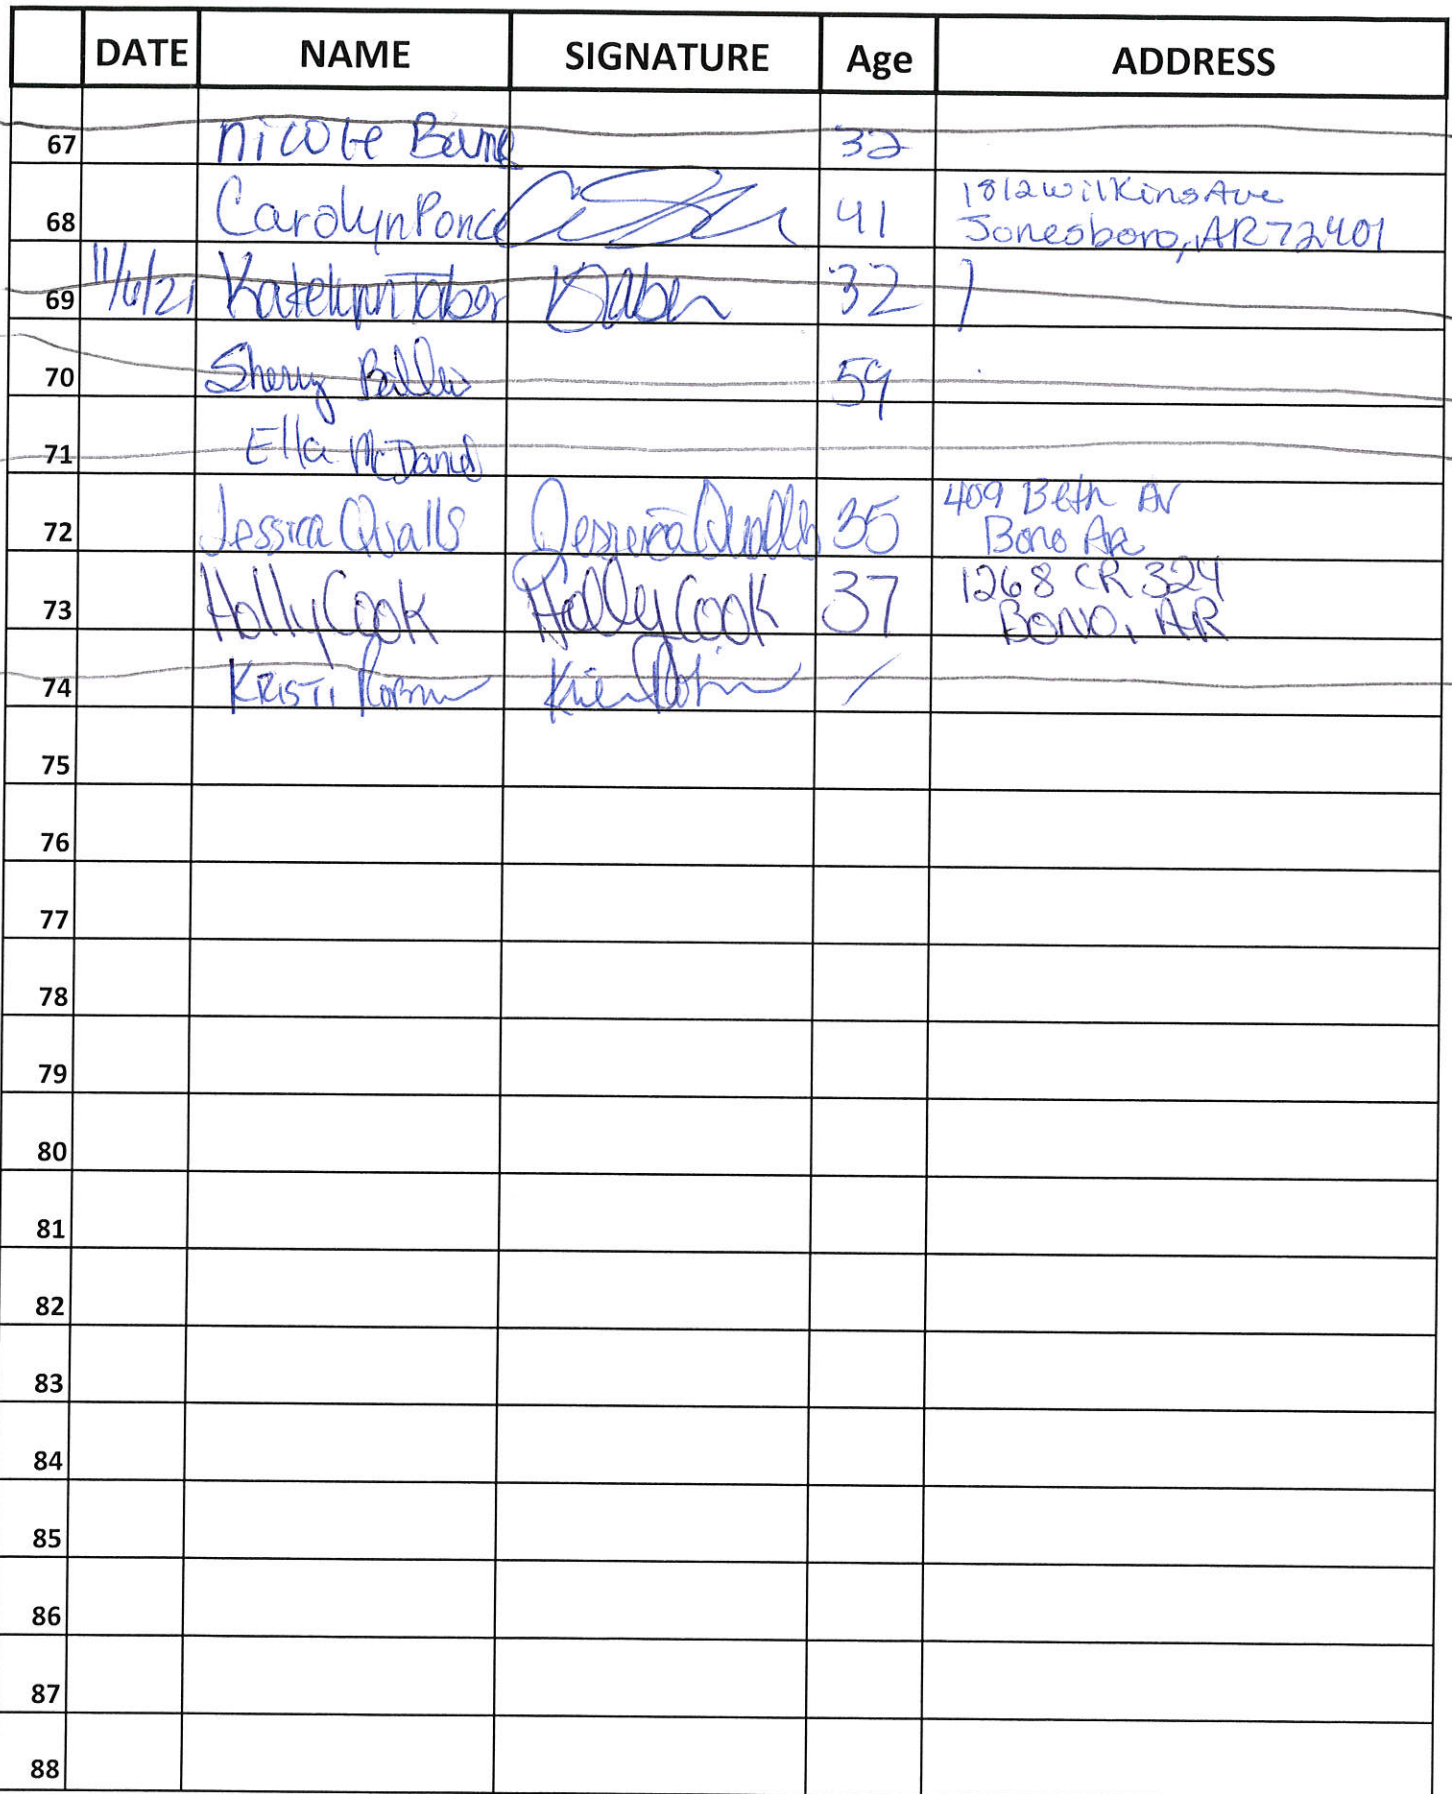 DATE NAME SIGNATURE Age ADDRESS
67 Nicole 32
68 Carolyn Ponce 41 1812 Wilkins Ave
Jonesboro, AR 72401
69 11/6/21 Katelynn Tabor KTabor 32
70 Sherry 59
71 Ella McDaniel
72 Jessica Qualls Jessica Qualls 35 409 Beth AV
Bono Ar
73 Holly Cook Holly Cook 37 1268 CR 324
BONO, AR
74 KRISTI
75
76
77
78
79
80
81
82
83
84
85
86
87
88